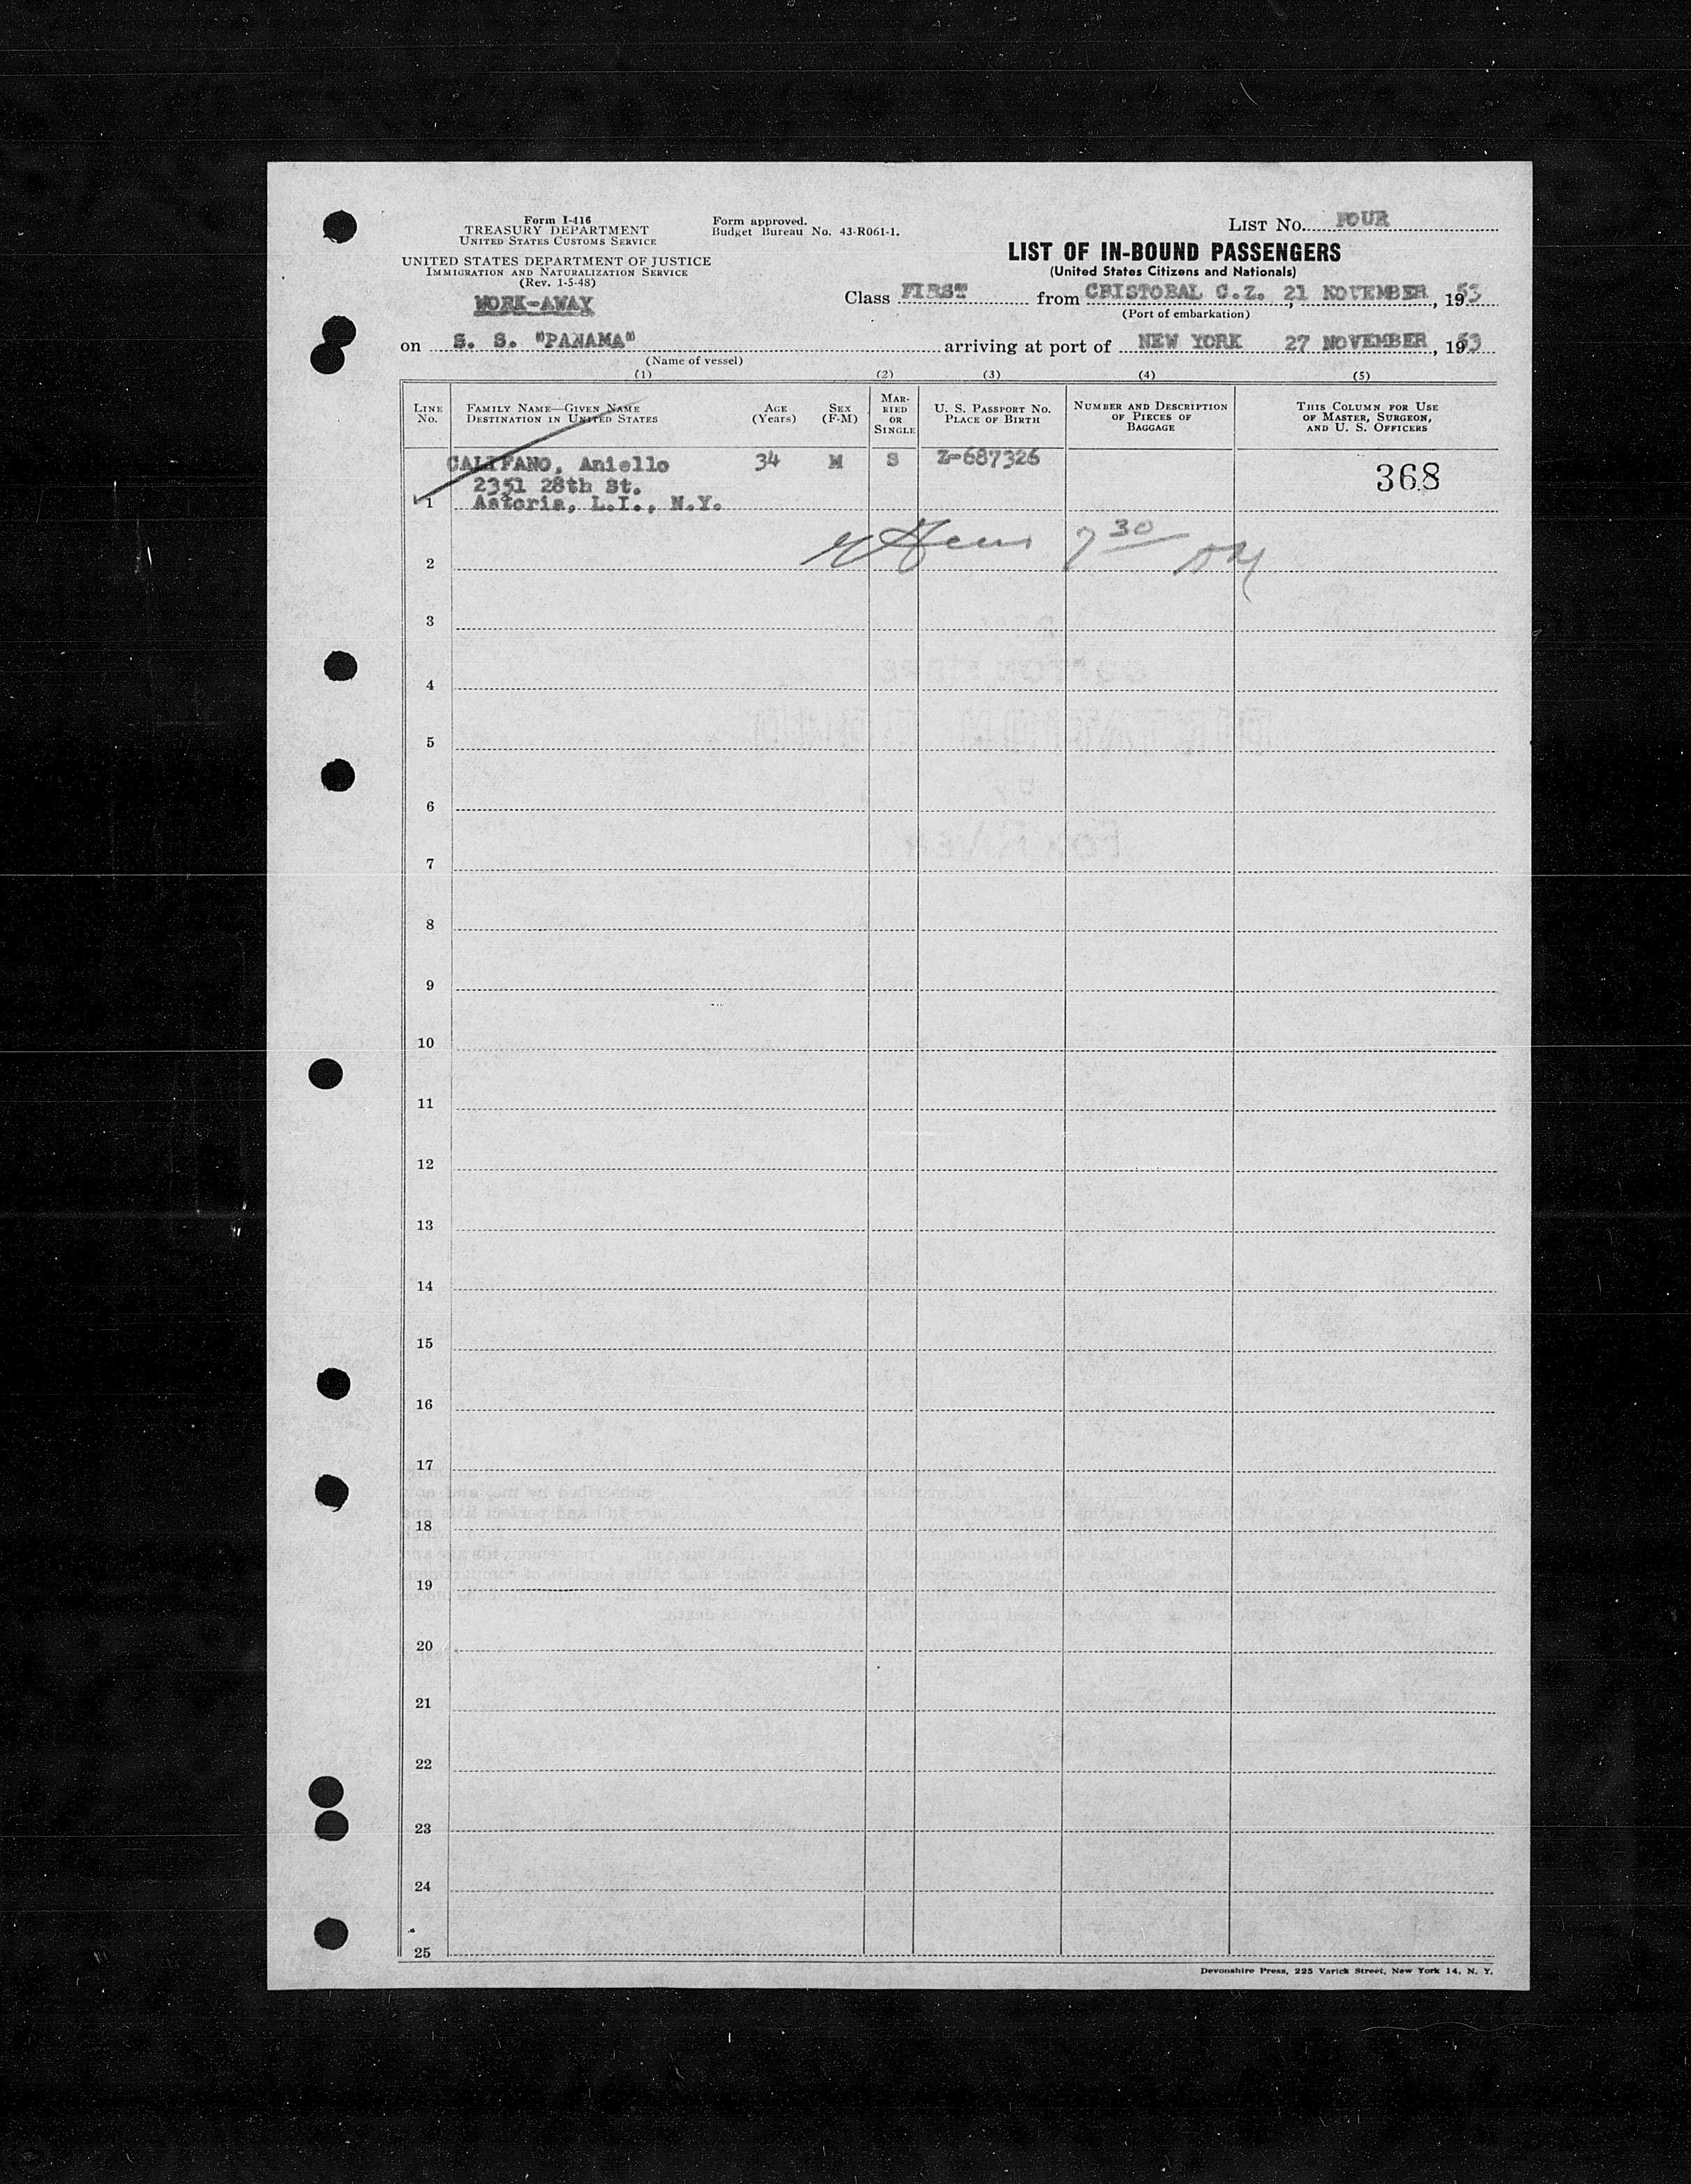 Form I-416
TREASURY DEPARTMENT
UNITED STATES CUSTOMS SERVICE
UNITED STATES DEPARTMENT OF JUSTICE
IMMIGRATION AND NATURALIZATION SERVICE
(Rev. 1-5-48)
Form approved.
Budget Bureau No. 43-R061-1.
LIST No. FOUR
LIST OF IN-BOUND PASSENGERS
(United States Citizens and Nationals)
WORK-AWAY
Class FIRST from CRISTOBAL C.Z., 21 NOVEMBER, 1953
(Port of embarkation)
on S. S. "PANAMA" arriving at port of NEW YORK 27 NOVEMBER, 1953
(Name of vessel)
(1) (2) (3) (4) (5)
LINE No.
FAMILY NAME—GIVEN NAME
DESTINATION IN UNITED STATES
AGE (Years)
SEX (F-M)
MARRIED OR SINGLE
U. S. PASSPORT No.
PLACE OF BIRTH
NUMBER AND DESCRIPTION OF PIECES OF BAGGAGE
THIS COLUMN FOR USE OF MASTER, SURGEON, AND U. S. OFFICERS
CALIFANO, Aniello 34 M S Z-687326 368
2351 28th St.
1 Astoria, L.I., N.Y.
7 30
2
3
4
5
6
7
8
9
10
11
12
13
14
15
16
17
18
19
20
21
22
23
24
25
Devonshire Press, 225 Varick Street, New York 14, N. Y.